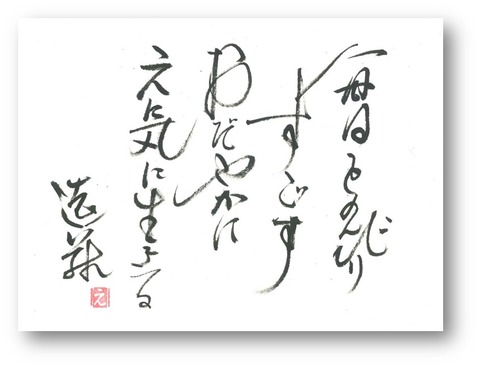 毎日をのんびり
とすごす
おだやかに
元気に生きる